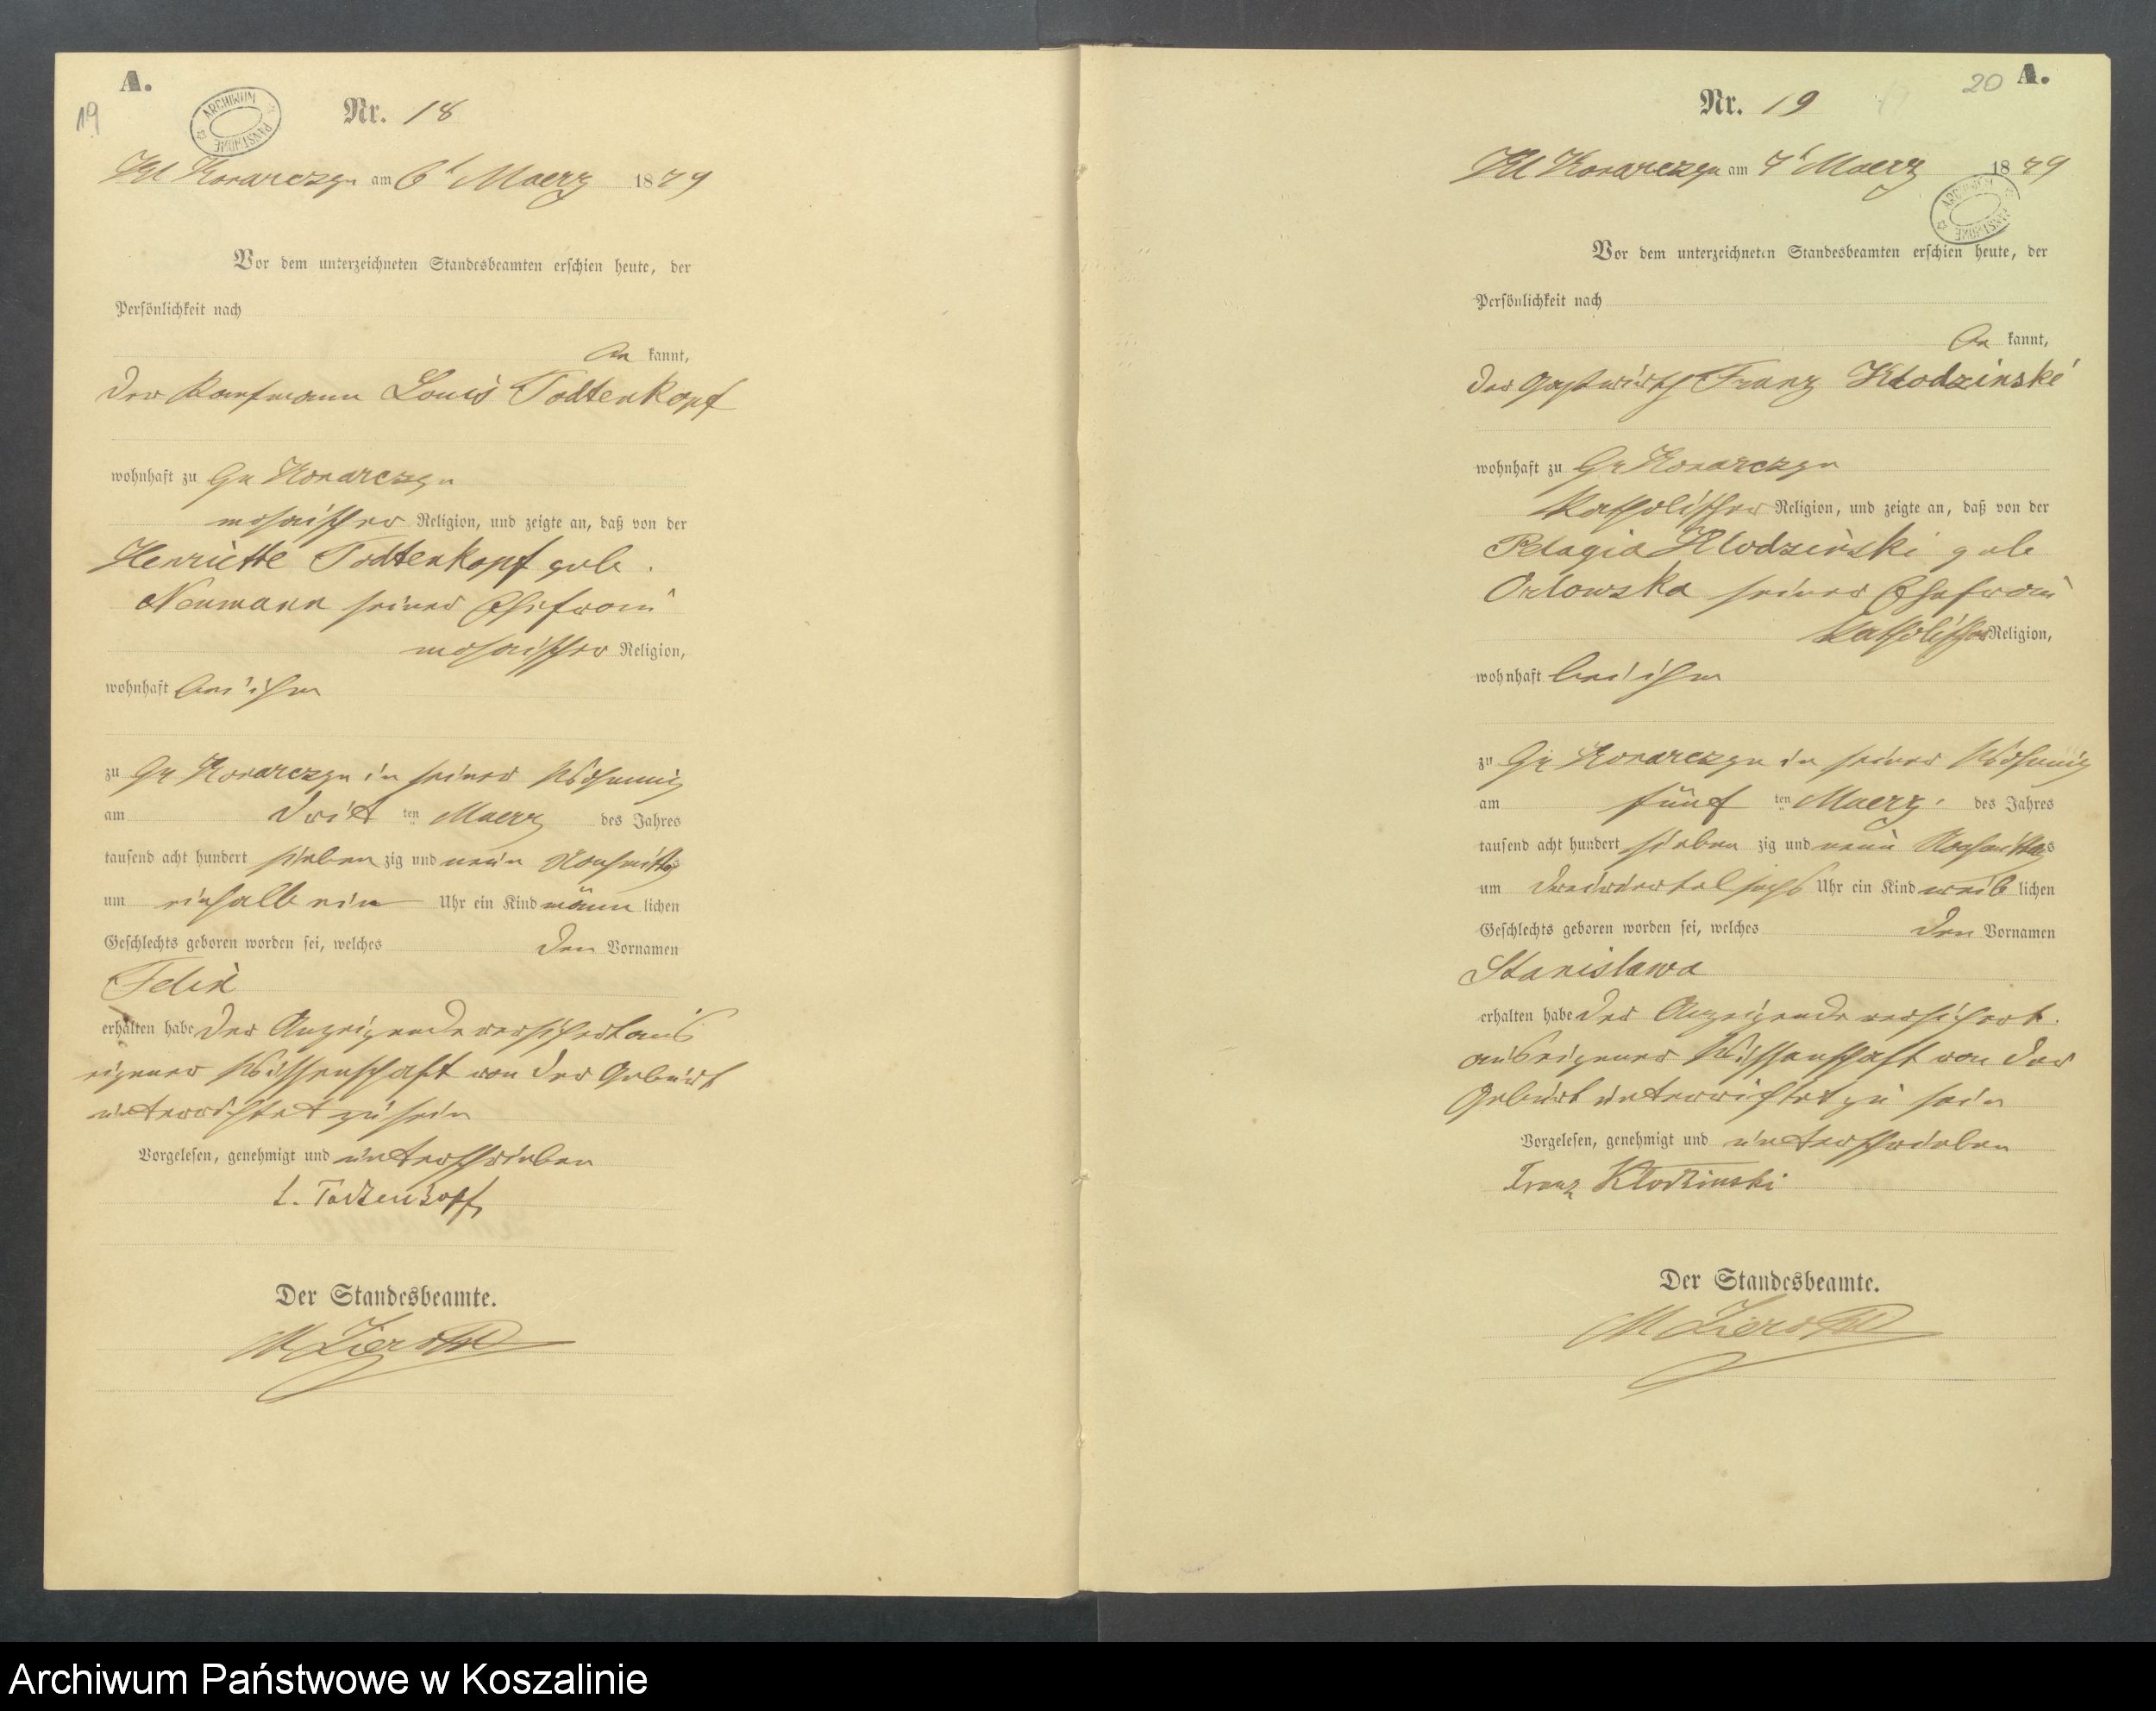 A.
19
ARCHIWUM PAŃSTWOWE
Nr. 18
Kl Konarczyn am 6t Maerz 1879
Vor dem unterzeichneten Standesbeamten erschien heute, der
Persönlichkeit nach
be kannt,
der Kaufmann Louis Todtenkopf
wohnhaft zu Gr Konarczyn
mosaischer Religion, und zeigte an, daß von der
Henriette Todtenkopf geb.
Neumann seiner Ehefrau
mosaischer Religion,
wohnhaft bei ihm
zu Gr Konarczyn in seiner Wohnung
am drit ten Maerz des Jahres
tausend acht hundert sieben zig und neun Nachmittags
um einhalb ein Uhr ein Kind männ lichen
Geschlechts geboren worden sei, welches den Vornamen
Felix
erhalten habe der Anzeigende versichert aus
eigener Wissenschaft von der Geburt
unterrichtet zu sein
Vorgelesen, genehmigt und unterschrieben
L. Todtenkopf
Der Standesbeamte.
20 A.
Nr. 19
Kl Konarczyn am 7t Maerz 1879
ARCHIWUM PAŃSTWOWE
Vor dem unterzeichneten Standesbeamten erschien heute, der
Persönlichkeit nach
be kannt,
der Gastwirth Franz Klodzinski
wohnhaft zu Gr Konarczyn
katholischer Religion, und zeigte an, daß von der
Pelagia Klodzinski geb
Orlowska seiner Ehefrau
katholischer Religion,
wohnhaft bei ihm
zu Gr Konarczyn in seiner Wohnung
am fünf ten Maerz des Jahres
tausend acht hundert sieben zig und neun Nachmittags
um dreiviertel sechs Uhr ein Kind weib lichen
Geschlechts geboren worden sei, welches den Vornamen
Stanislawa
erhalten habe der Anzeigende versichert
aus eigener Wissenschaft von der
Geburt unterrichtet zu sein
Vorgelesen, genehmigt und unterschrieben
Franz Klodzinski
Der Standesbeamte.
Archiwum Państwowe w Koszalinie